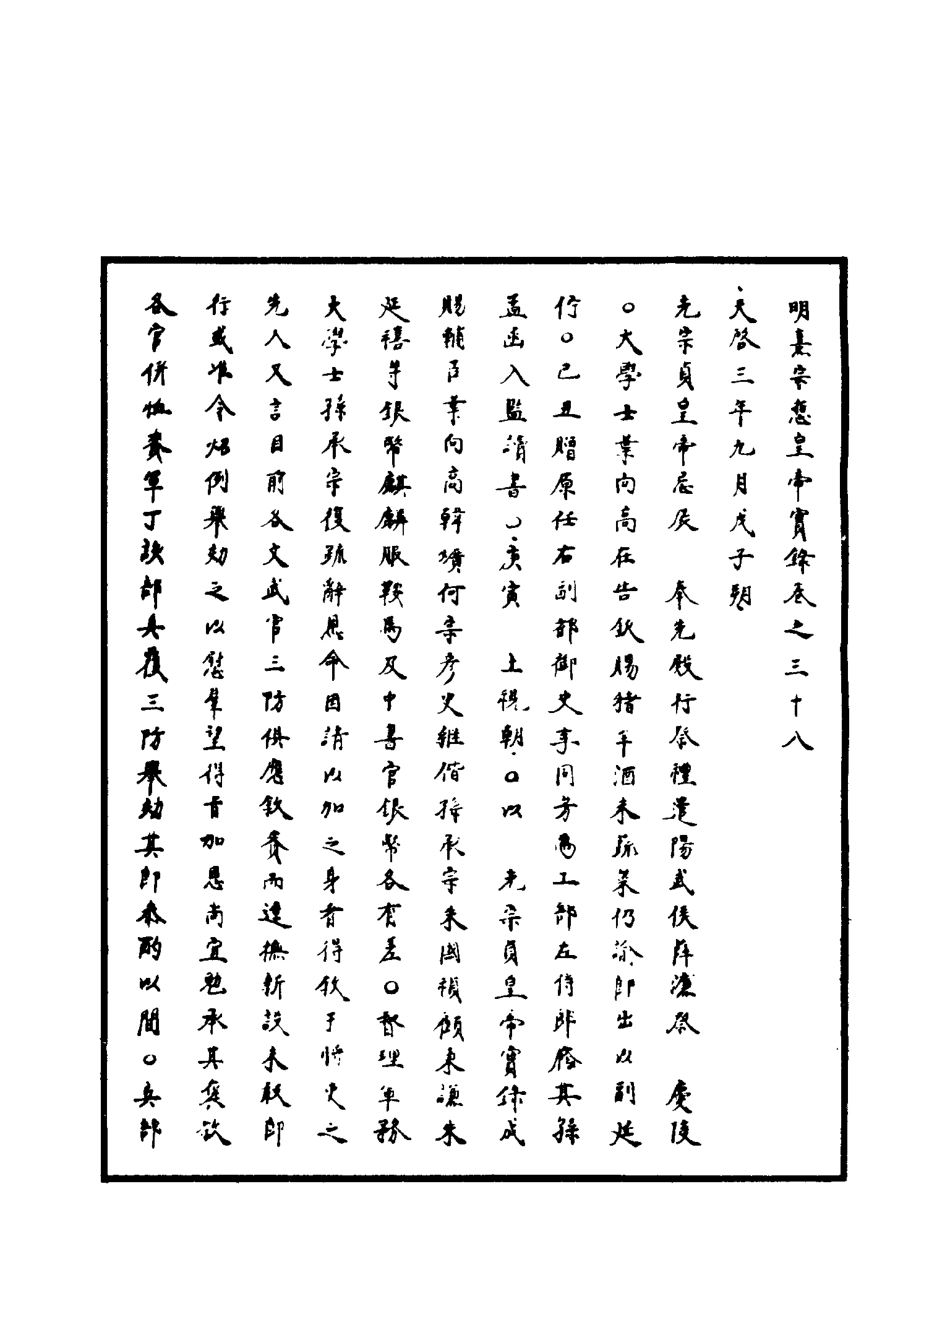 明熹宗悊皇帝實錄卷之三十八
天啓三年九月戊子朔
光宗貞皇帝忌辰 奉先殿行祭禮遣陽武侯薛濂祭 慶陵
○大學士葉向高在告欽賜猪羊酒米蔬菜仍諭即出以副延
佇○己丑贈原任右副都御史李同芳為工部左侍郎廕其孫
孟函入監讀書○庚寅 上視朝○以 光宗貞皇帝實錄成
賜輔臣葉向高韓爌何宗彥史繼偕孫承宗朱國禎顧秉謙朱
延禧等銀幣麒麟服鞍馬及中書官銀幣各有差○督理軍務
大學士孫承宗復疏辭恩命因請以加之身者得敘于將吏之
先入又言目前各文武官三防俱應敘賚而違撫新設未敢即
行或准令炤例舉劾之以慰羣望得旨加恩尚宜勉承其彙敘
各官併恤賚軍丁該部具覆三防舉劾其即參酌以聞○兵部